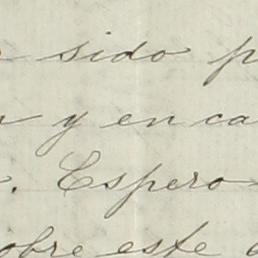 sido
y en ca
. Espero
obre este